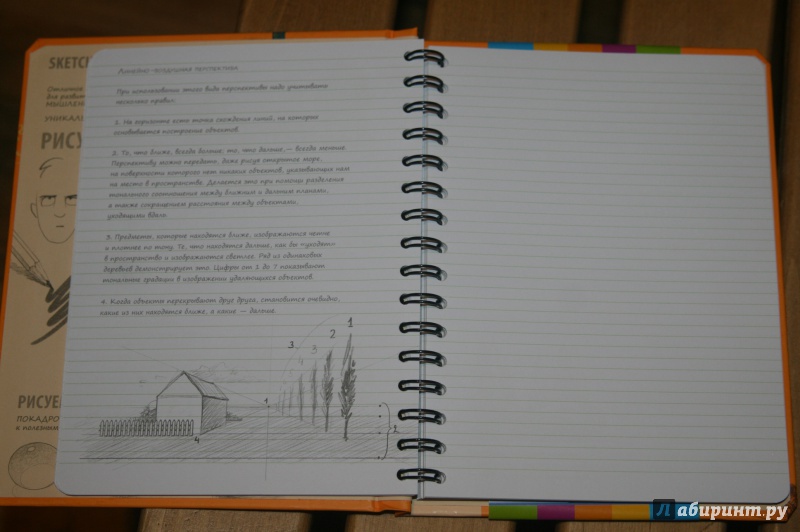 SKETCH
Отличное
для развит
МЫШЛЕНИ
УНИКАЛЬ
РИСУЕ
РИСУЕМ
ПОКАДРО
Линейно-воздушная перспектива
При использовании этого вида перспективы надо учитывать
несколько правил.
1. На горизонте есть точка схождения линий, на которых
основывается построение объектов.
2. То, что ближе, всегда больше; то, что дальше, — всегда меньше.
Перспективу можно передать, даже рисуя открытое море,
на поверхности которого нет никаких объектов, указывающих нам
на место в пространстве. Делается это при помощи разделения
тонального соотношения между ближним и дальним планами,
а также сокращением расстояния между объектами,
уходящими вдаль.
3. Предметы, которые находятся ближе, изображаются ярче
и плотнее по тону. Те, что находятся дальше, как бы «уходят»
в пространство и изображаются светлее. Ряд из одинаковых
деревьев демонстрирует это. Цифры от 1 до 7 показывают
тональные градации в изображении удаляющихся объектов.
4. Когда объекты перекрывают друг друга, становится очевидно,
какие из них находятся ближе, а какие — дальше.
1
2
3
4
3.
1
4
2
Лабиринт.ру